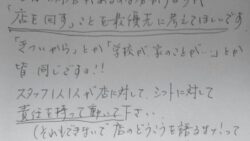 「店を回す」ことを最優先に考えてほしいです。
「きついから」とか「学校が 家のことが…」とか
皆 同じです!!
スタッフ1人1人が店に対して、シフトに対して
責任を持って動いて下さい。
(それもできないで店のどうこうを語るな!って